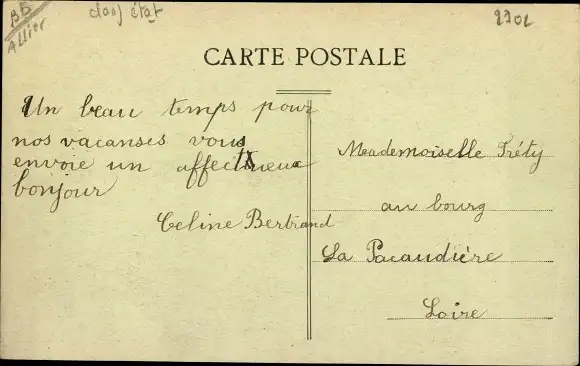 BB
Allier
dans état
CARTE POSTALE
Un beau temps pour
nos vacanses vous
envoie un affectueux
bonjour
Celine Bertrand
Mademoiselle Tréty
au bourg
La Pacaudière
Loire